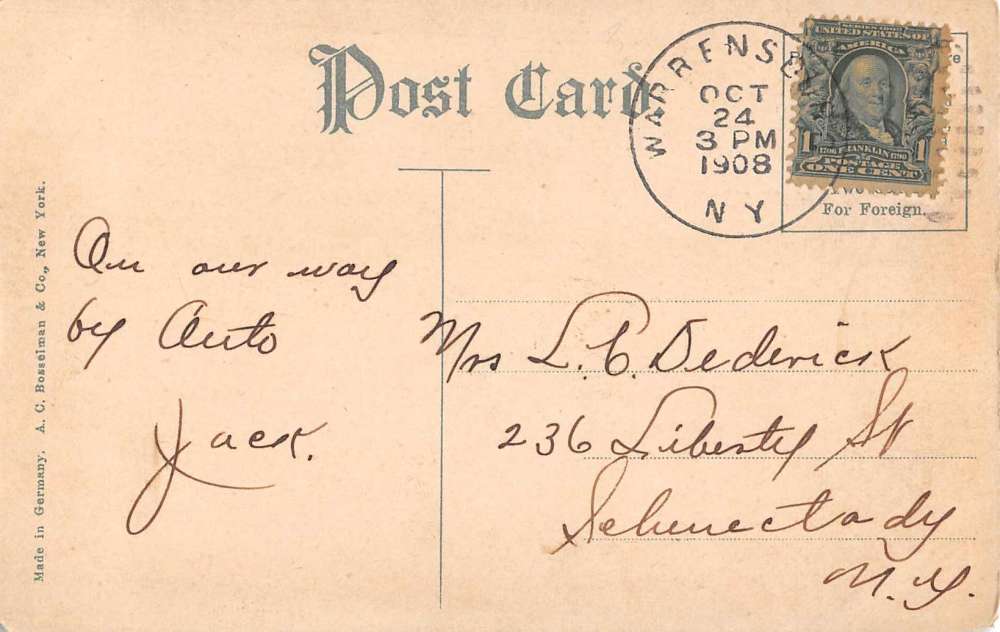 Post Card.
WARRENSB
OCT
24
3 PM
1908
N Y
SERIES 1902
UNITED STATES OF
AMERICA
1 1706 FRANKLIN 1790 1
POSTAGE
ONE CENT
For Foreign.
Made in Germany. A. C. Bosselman & Co., New York.
On our way
by Auto
Jack.
Mrs L. C. Dederick
236 Liberty St
Schenectady
N. Y.